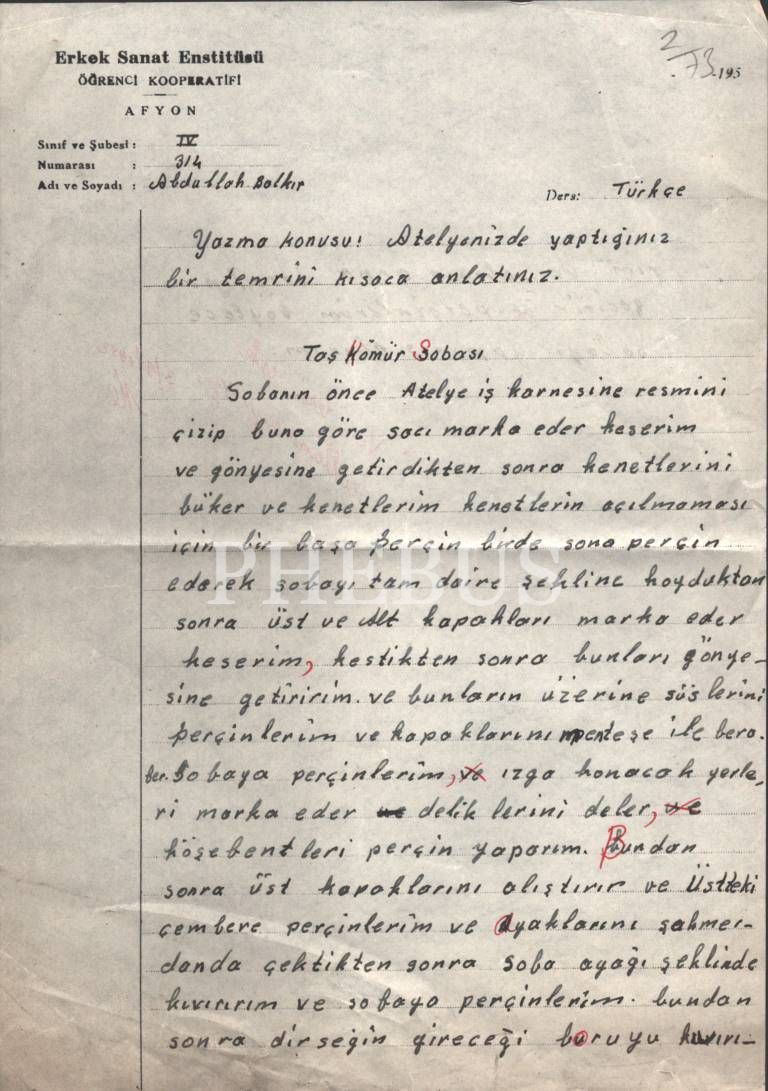 Erkek Sanat Enstitüsü
ÖĞRENCİ KOOPERATİFİ
AFYON
2/73.195
Sınıf ve Şubesi : IV
Numarası : 314
Adı ve Soyadı : Abdullah Balkır
Ders: Türkçe
Yazma konusu: Atelyenizde yaptığınız
bir temrini kısaca anlatınız.
Taş Kömür Sobası
Sobanın önce Atelye iş karnesine resmini
çizip buna göre sacı marka eder keserim
ve gönyesine getirdikten sonra kenetlerini
büker ve kenetlerim kenetlerin açılmaması
için bir başa perçin birde sona perçin
ederek sobayı tam daire şekline koyduktan
sonra üst ve Alt kapakları marka eder
keserim, kestikten sonra bunları gönye-
sine getiririm. ve bunların üzerine süslerini
perçinlerim ve kapaklarını menteşe ile bera-
ber. Sobaya perçinlerim, ve ızga konacak yerle,
ri marka eder ve delik lerini deler, ve
köşebentleri perçin yaparım. Bundan
sonra üst kapaklarını alıştırır ve Üstteki
çembere perçinlerim ve ayaklarını şahmer-
danda çektikten sonra soba ayağı şeklinde
kıvırırım ve sobaya perçinlerim. bundan
sonra dirseğin gireceği boruyu kıvırı-
PHEBUS